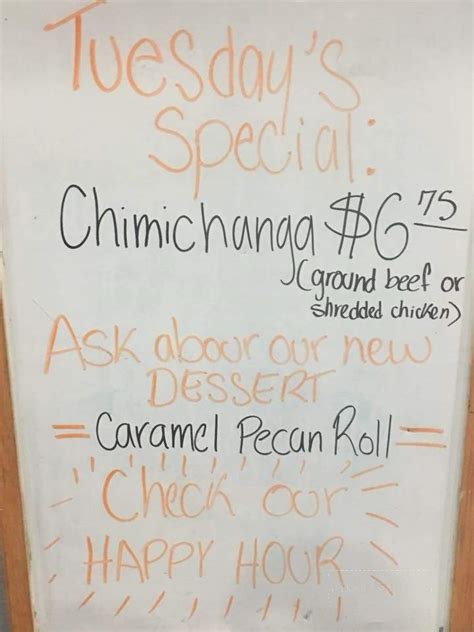 Tuesday's
Special:
Chimichanga $6 75
(ground beef or
shredded chicken)
Ask about our new
DESSERT
= Caramel Pecan Roll =
Check our
HAPPY HOUR